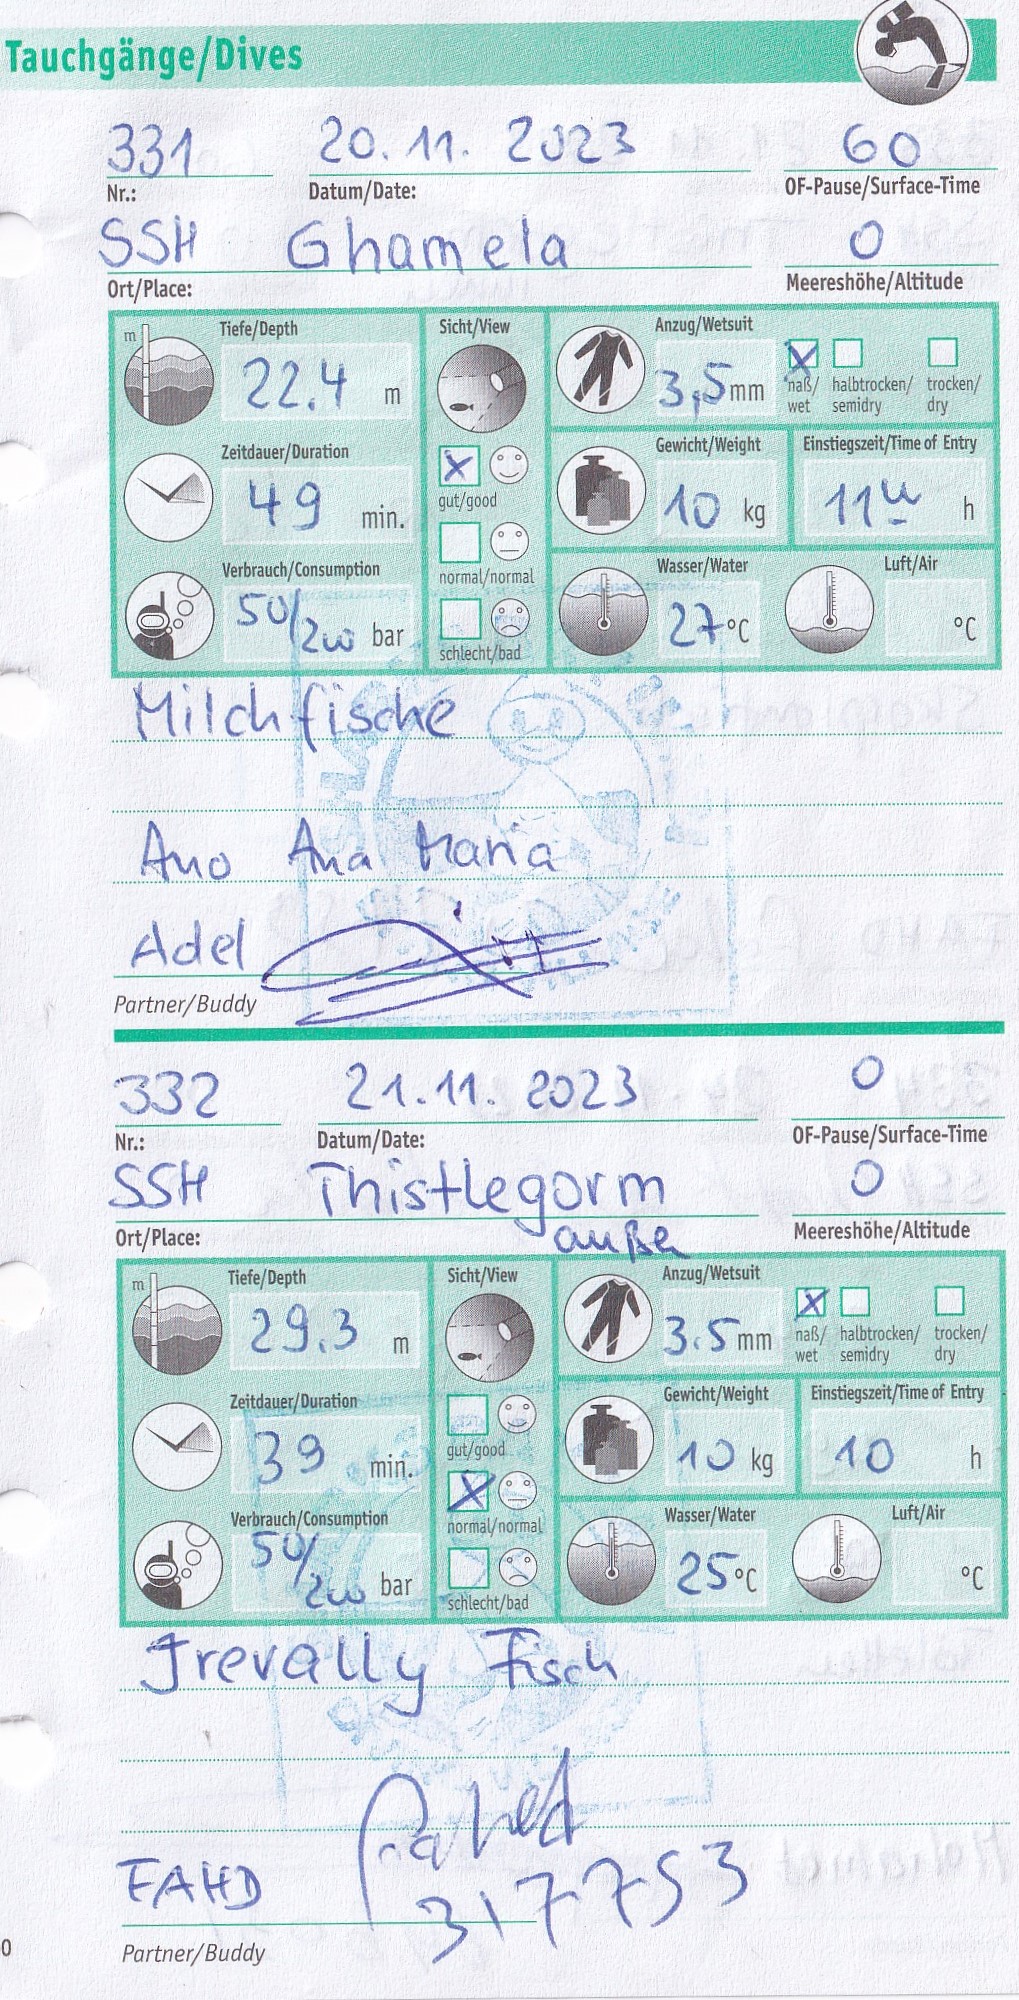 Tauchgänge/Dives
331 20.11.2023 60
Nr.: Datum/Date: OF-Pause/Surface-Time
SSH Ghamela 0
Ort/Place: Meereshöhe/Altitude
Tiefe/Depth Sicht/View Anzug/Wetsuit
m
22.4 m 3,5 mm X naß/wet halbtrocken/semidry trocken/dry
Zeitdauer/Duration Gewicht/Weight Einstiegszeit/Time of Entry
49 min. X gut/good 10 kg 11 h
normal/normal
Verbrauch/Consumption Wasser/Water Luft/Air
50/200 bar schlecht/bad 27 °C °C
Milchfische
Ano Ana Maria
Adel
Partner/Buddy
332 21.11.2023 0
Nr.: Datum/Date: OF-Pause/Surface-Time
SSH Thistlegorm 0
außen
Ort/Place: Meereshöhe/Altitude
Tiefe/Depth Sicht/View Anzug/Wetsuit
m
29.3 m 3.5 mm X naß/wet halbtrocken/semidry trocken/dry
Zeitdauer/Duration Gewicht/Weight Einstiegszeit/Time of Entry
39 min. gut/good 10 kg 10 h
X normal/normal
Verbrauch/Consumption Wasser/Water Luft/Air
50/200 bar schlecht/bad 25 °C °C
Trevally Fisch
FAHD 317753
Partner/Buddy
0